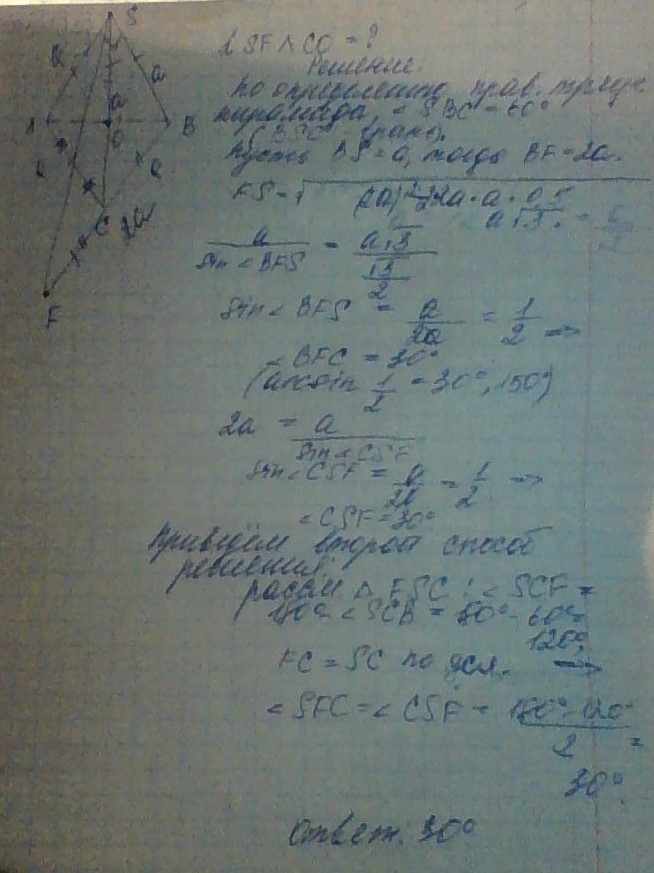 ∠ SF ∧ CO = ?
Решение:
По определению прав. треуг.
пирамида, ∠ SBC = 60°
(BSC - грань).
Пусть BS = a, тогда BF = 2a.
FS = √ (2a)² - 2·2a·a·0,5
a√3.
a / sin ∠ BFS = a√3 / (√3 / 2)
sin ∠ BFS = a / 2a = 1 / 2 =>
∠ BFC = 30°
(arcsin 1/2 = 30°, 150°)
2a = a / sin ∠ CSF
sin ∠ CSF = a / 2a = 1 / 2 =>
∠ CSF = 30°
Приведём второй способ
решения:
рассм Δ FSC: ∠ SCF =
180° - ∠ SCB = 180° - 60° =
120°,
FC = SC по усл. =>
∠ SFC = ∠ CSF = (180° - 120°) / 2 =
30°.
Ответ: 30°
S
A
a
a
O
B
a
C
2a
F